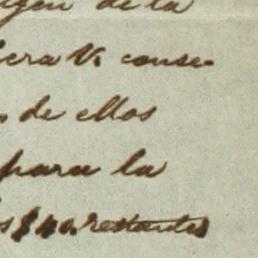 igen de la
iera V. conse-
. de ellos
para la
s $40. restantes